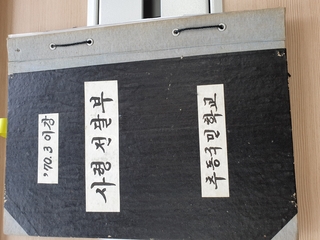 '70. 3 이강
사령 전달부
추동국민학교